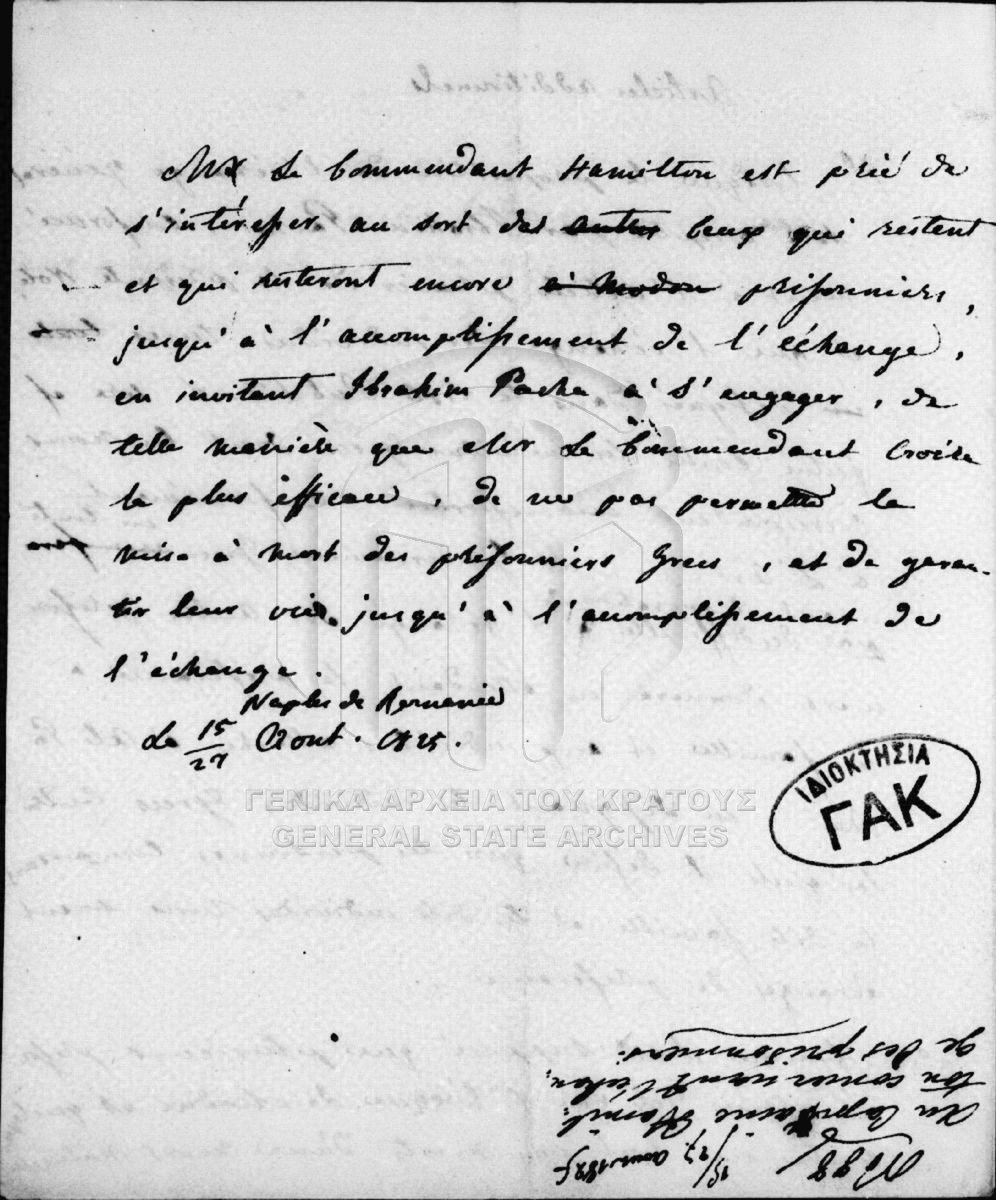 Mr Le Commendant Hamilton est prié de
s'intéresser au sort des autres ceux qui restent
et qui resteront encore à Modon prisonniers,
jusqu'à l'accomplissement de l'échange,
en invitant Ibrahim Pacha à s'engager, de
telle manière que Mr Le Commendant croira
la plus efficace, de ne pas permettre la
mise à mort des prisonniers Grecs, et de garan-
tir leur vie jusqu'à l'accomplissement de
l'échange.
Naples de Romanie
Le 15/27 Août. 1825.
ΙΔΙΟΚΤΗΣΙΑ
ΓΑΚ
ΓΕΝΙΚΑ ΑΡΧΕΙΑ ΤΟΥ ΚΡΑΤΟΥΣ
GENERAL STATE ARCHIVES
15/27 Aout 1825
Au Capitaine Hamil-
ton concernant l'échan-
ge des prisonniers.